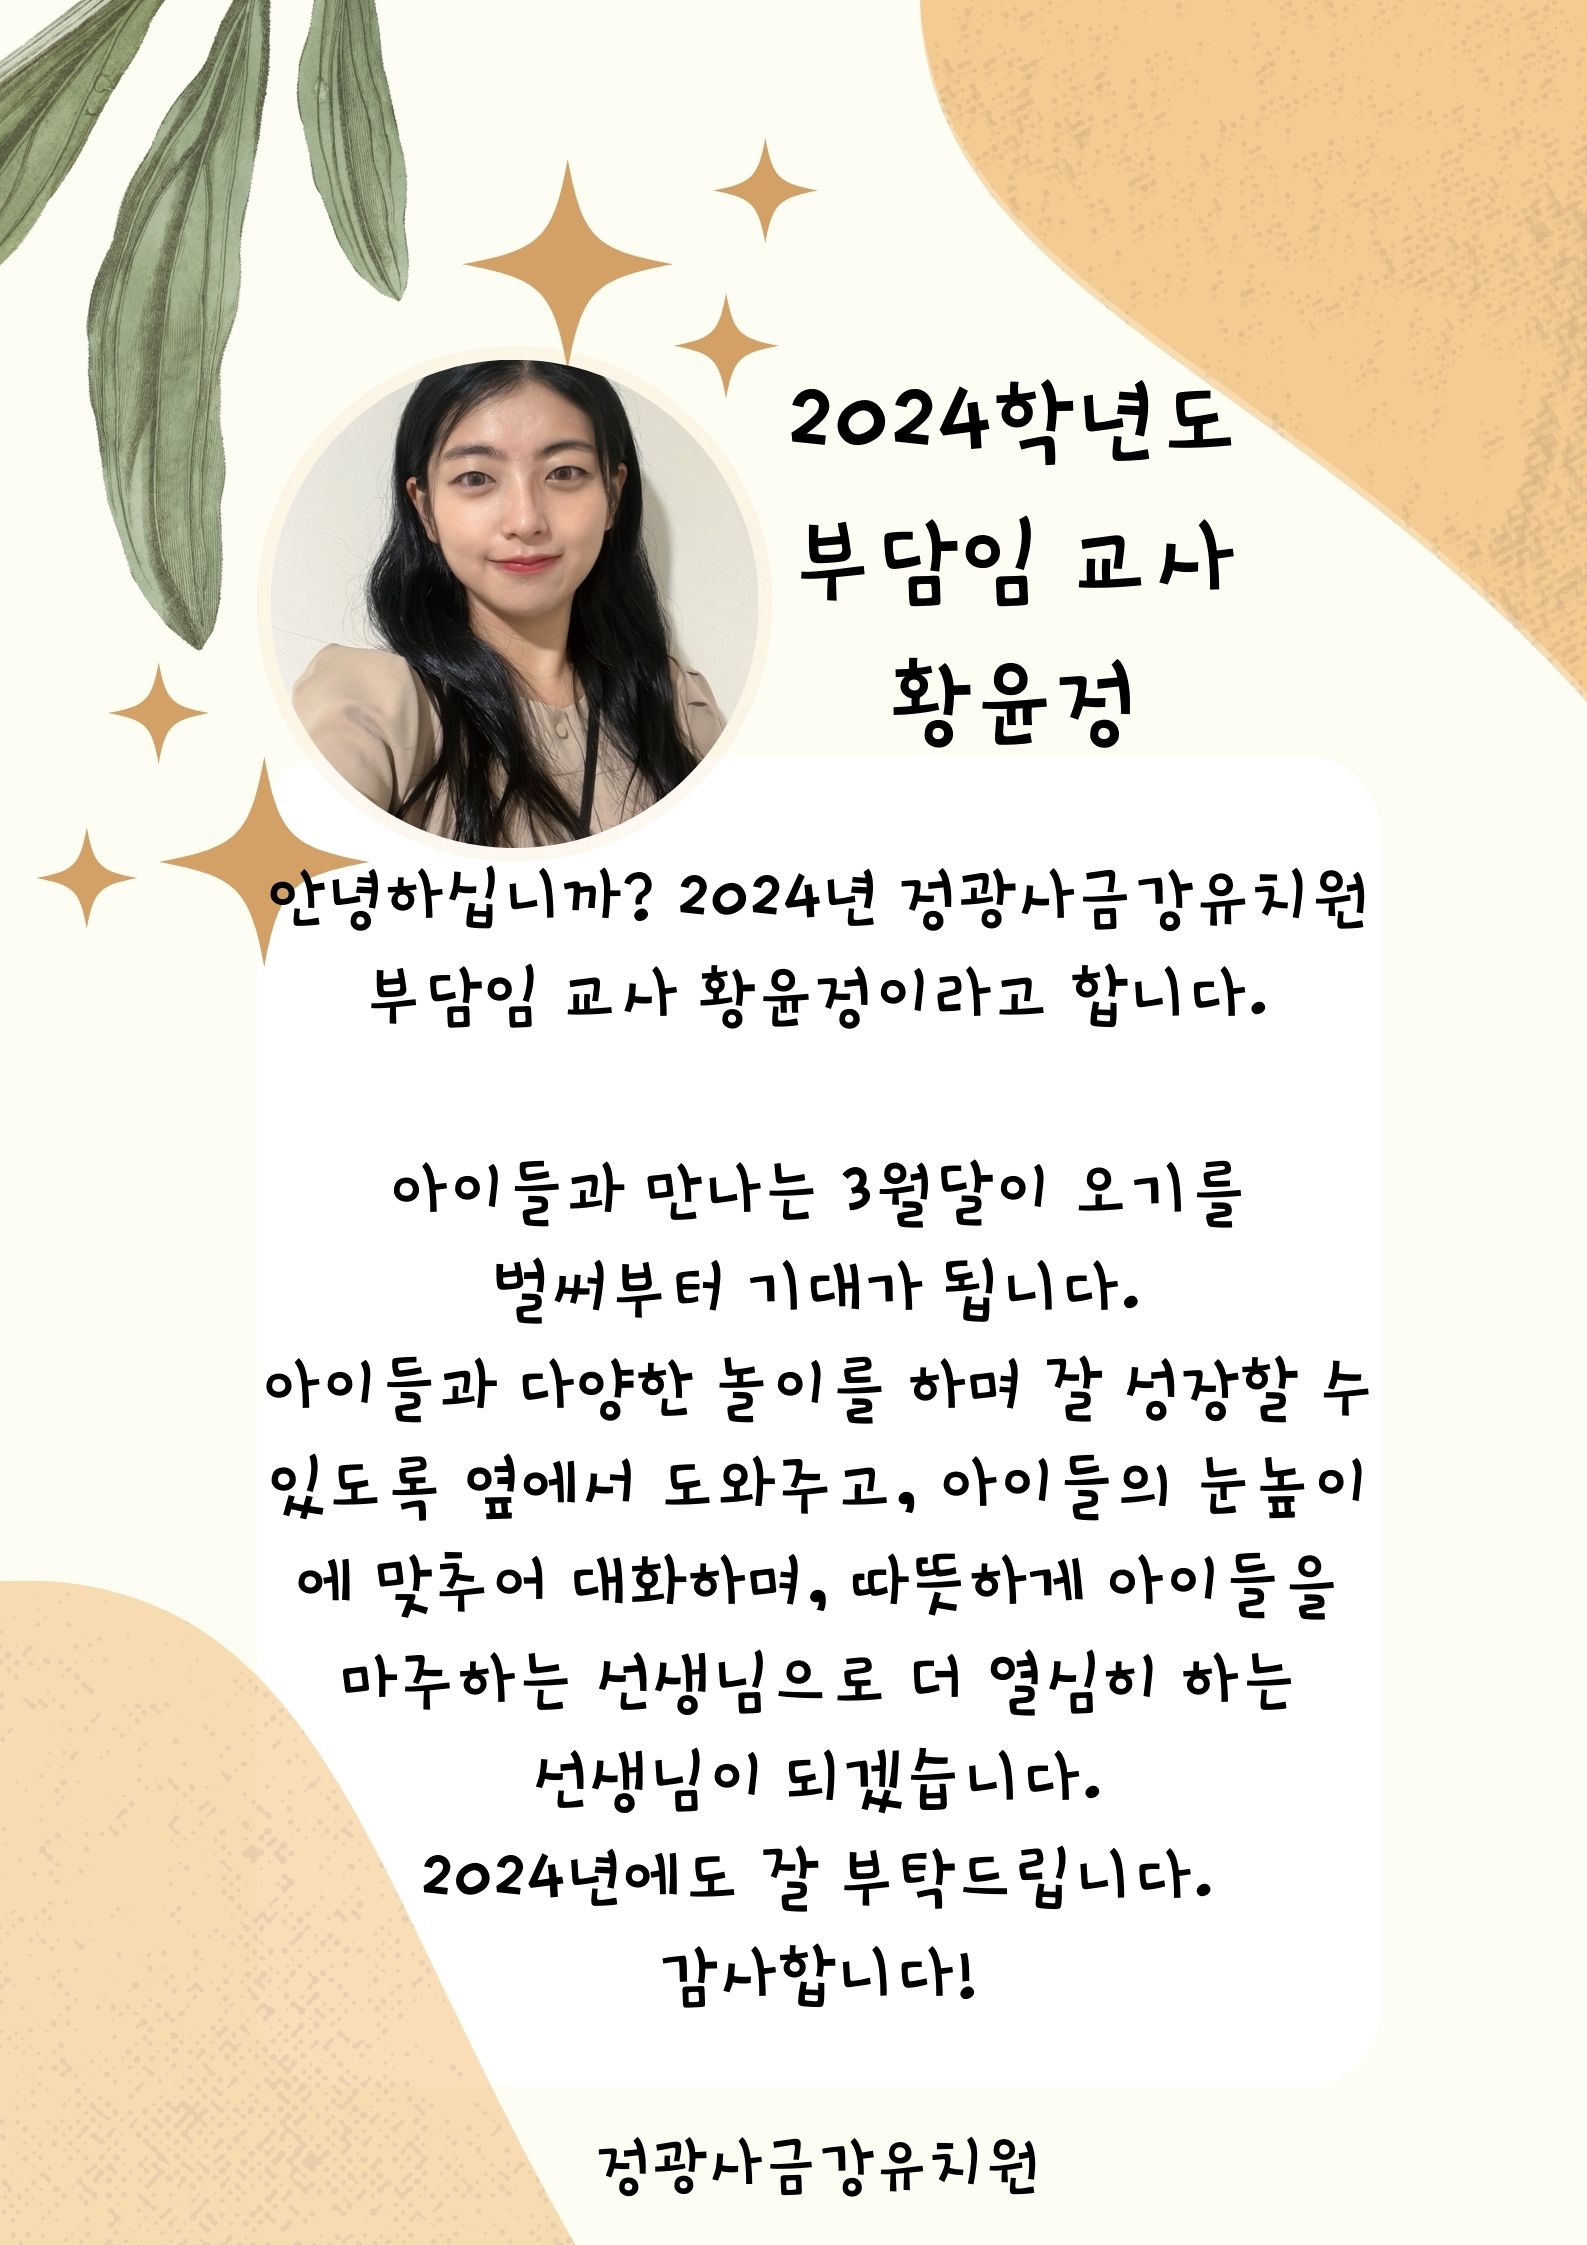 2024학년도
부담임 교사
황윤정
안녕하십니까? 2024년 정광사금강유치원
부담임 교사 황윤정이라고 합니다.
아이들과 만나는 3월달이 오기를
벌써부터 기대가 됩니다.
아이들과 다양한 놀이를 하며 잘 성장할 수
있도록 옆에서 도와주고, 아이들의 눈높이
에 맞추어 대화하며, 따뜻하게 아이들을
마주하는 선생님으로 더 열심히 하는
선생님이 되겠습니다.
2024년에도 잘 부탁드립니다.
감사합니다!
정광사금강유치원